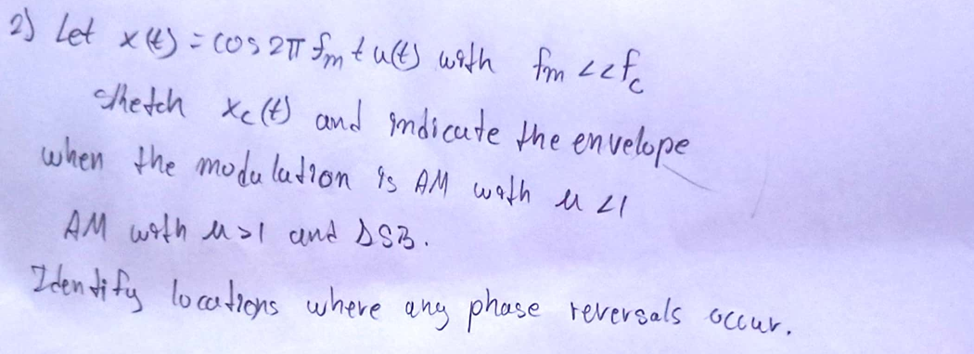 2) Let x(t) = cos 2π fm t u(t) with fm << fc
sketch xc(t) and indicate the envelope
when the modulation is AM with μ <1
AM with μ>1 and DSB.
Identify locations where any phase reversals occur.